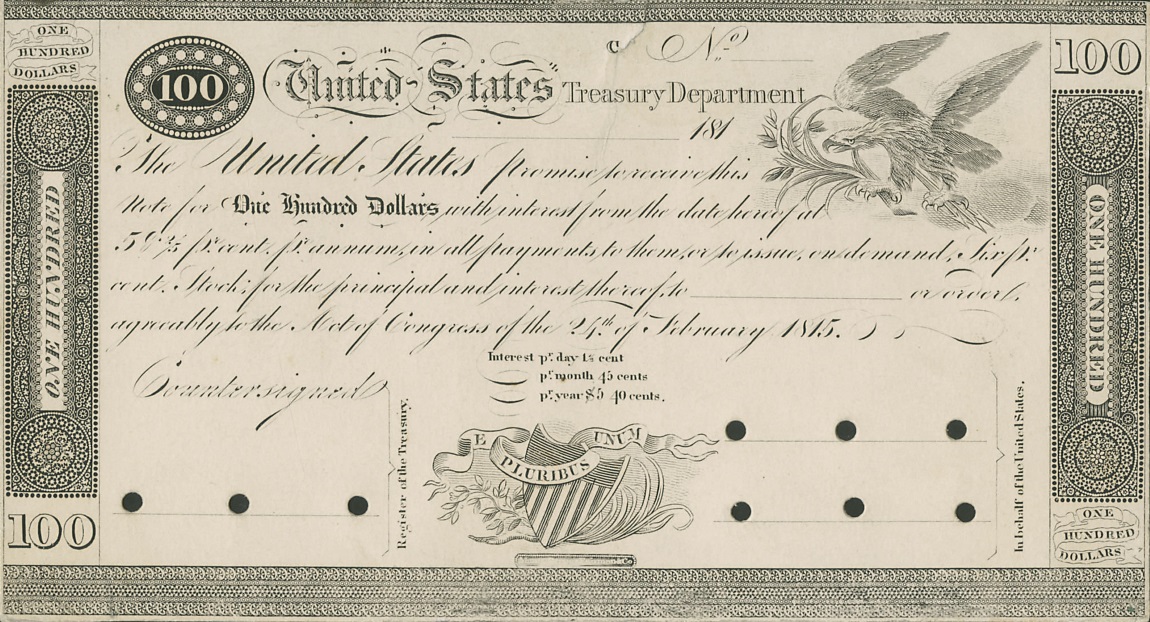 ONE
HUNDRED
DOLLARS
100
ONE HUNDRED
100
100
United States Treasury Department
C Nº
181
The United States promise to receive this
Note for One Hundred Dollars, with interest from the date hereof at
5 2/5 pr. cent. pr. annum, in all payments to them, or to issue, on demand, Six pr.
cent. Stock, for the principal and interest thereof, to or order,
agreeably to the Act of Congress of the 24th of February 1815.
Interest pr. day 1½ cent
pr. month 45 cents
pr. year $5 40 cents.
Countersigned
Register of the Treasury.
E PLURIBUS UNUM
In behalf of the United States.
100
ONE HUNDRED
ONE
HUNDRED
DOLLARS